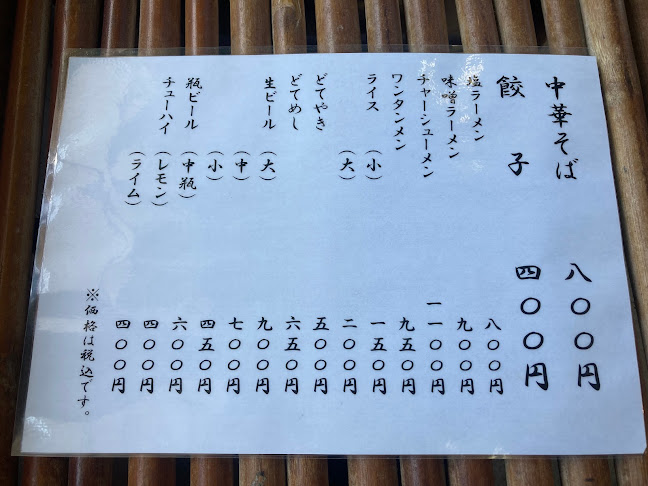 中華そば 八〇〇円
餃子 四〇〇円
塩ラーメン 八〇〇円
味噌ラーメン 九〇〇円
チャーシューメン 一一〇〇円
ワンタンメン 九五〇円
ライス (小) 一五〇円
(大) 二〇〇円
どてやき 五〇〇円
どてめし 六五〇円
生ビール (大) 九〇〇円
(中) 七〇〇円
(小) 四五〇円
瓶ビール (中瓶) 六〇〇円
チューハイ (レモン) 四〇〇円
(ライム) 四〇〇円
※価格は税込です。